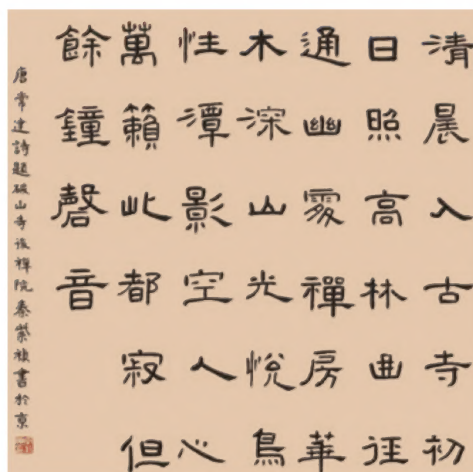 清晨入古寺初
日照高林曲徑
通幽處禪房華
木深山光悅鳥
性潭影空人心
萬籟此都寂但
餘鐘磬音
唐常建詩題破山寺後禪院秦紫書於京